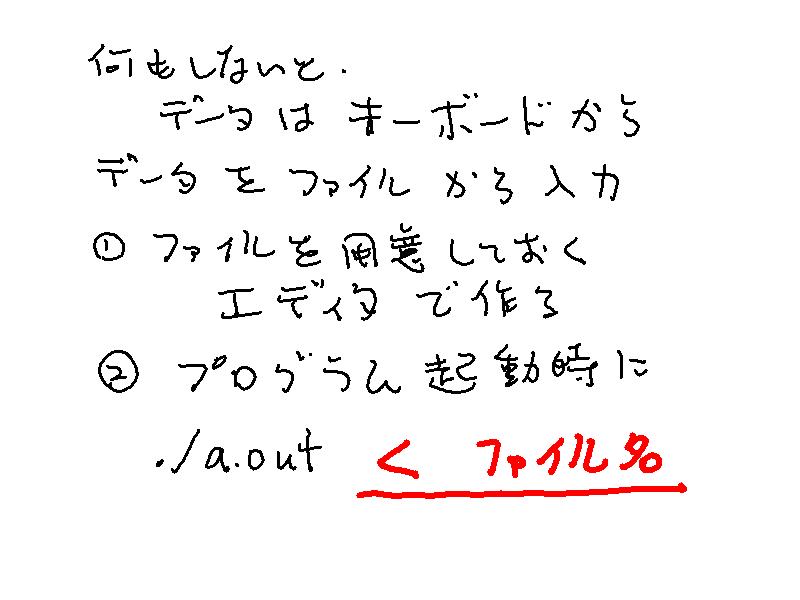 何もしないと.
データは キーボードから
データを ファイル から 入力
① ファイルを用意しておく
エディタで作る
② プログラム 起動時に
./a.out < ファイル名